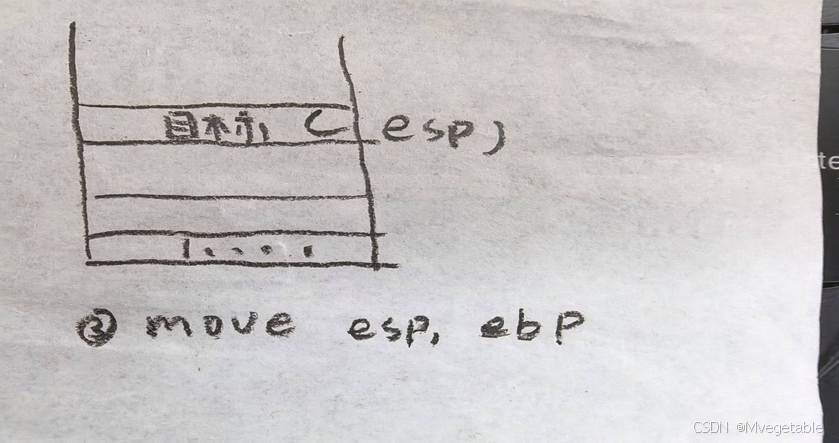 目标 (esp)
1....
③ move esp, ebp
CSDN @Mvegetable